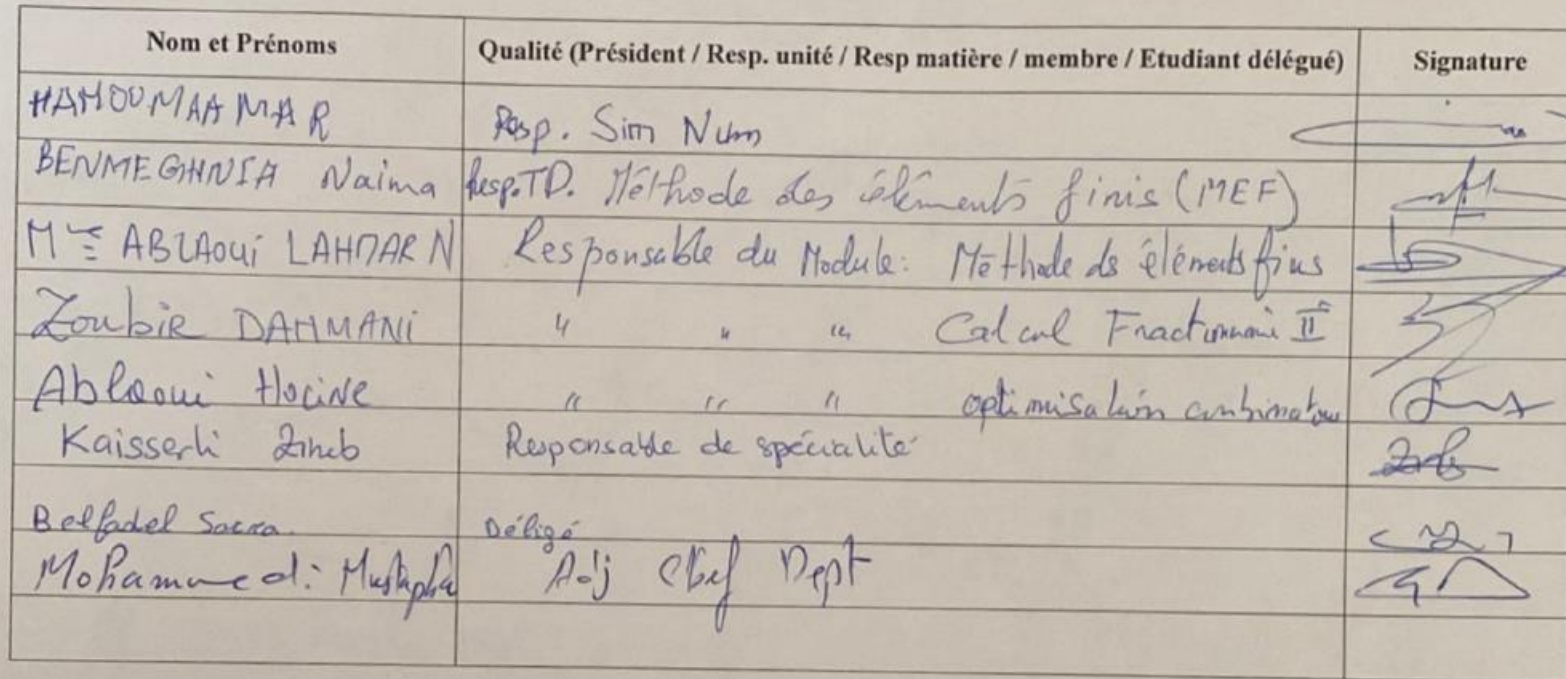 Nom et Prénoms Qualité (Président / Resp. unité / Resp matière / membre / Etudiant délégué) Signature
HAMOUMAAMAR Resp. Sim Num
BENMEGHNIA Naima Resp.TD. Méthode des éléments finis (MEF)
Mme ABLAOUI LAHMAR N Responsable du Module: Méthode ds éléments finis
Zoubir DAHMANI " " " Calcul Fractionnaire II
Ablaoui Hocine " " " optimisation combinatoire
Kaisserli Zineb Responsable de spécialité
Belfadel Délégé
Mohammedi Mustapha Adj Chef Dept